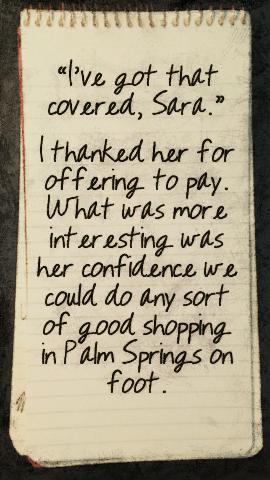 “I’ve got that
covered, Sara.”
I thanked her for
offering to pay.
What was more
interesting was
her confidence we
could do any sort
of good shopping
in Palm Springs on
foot.